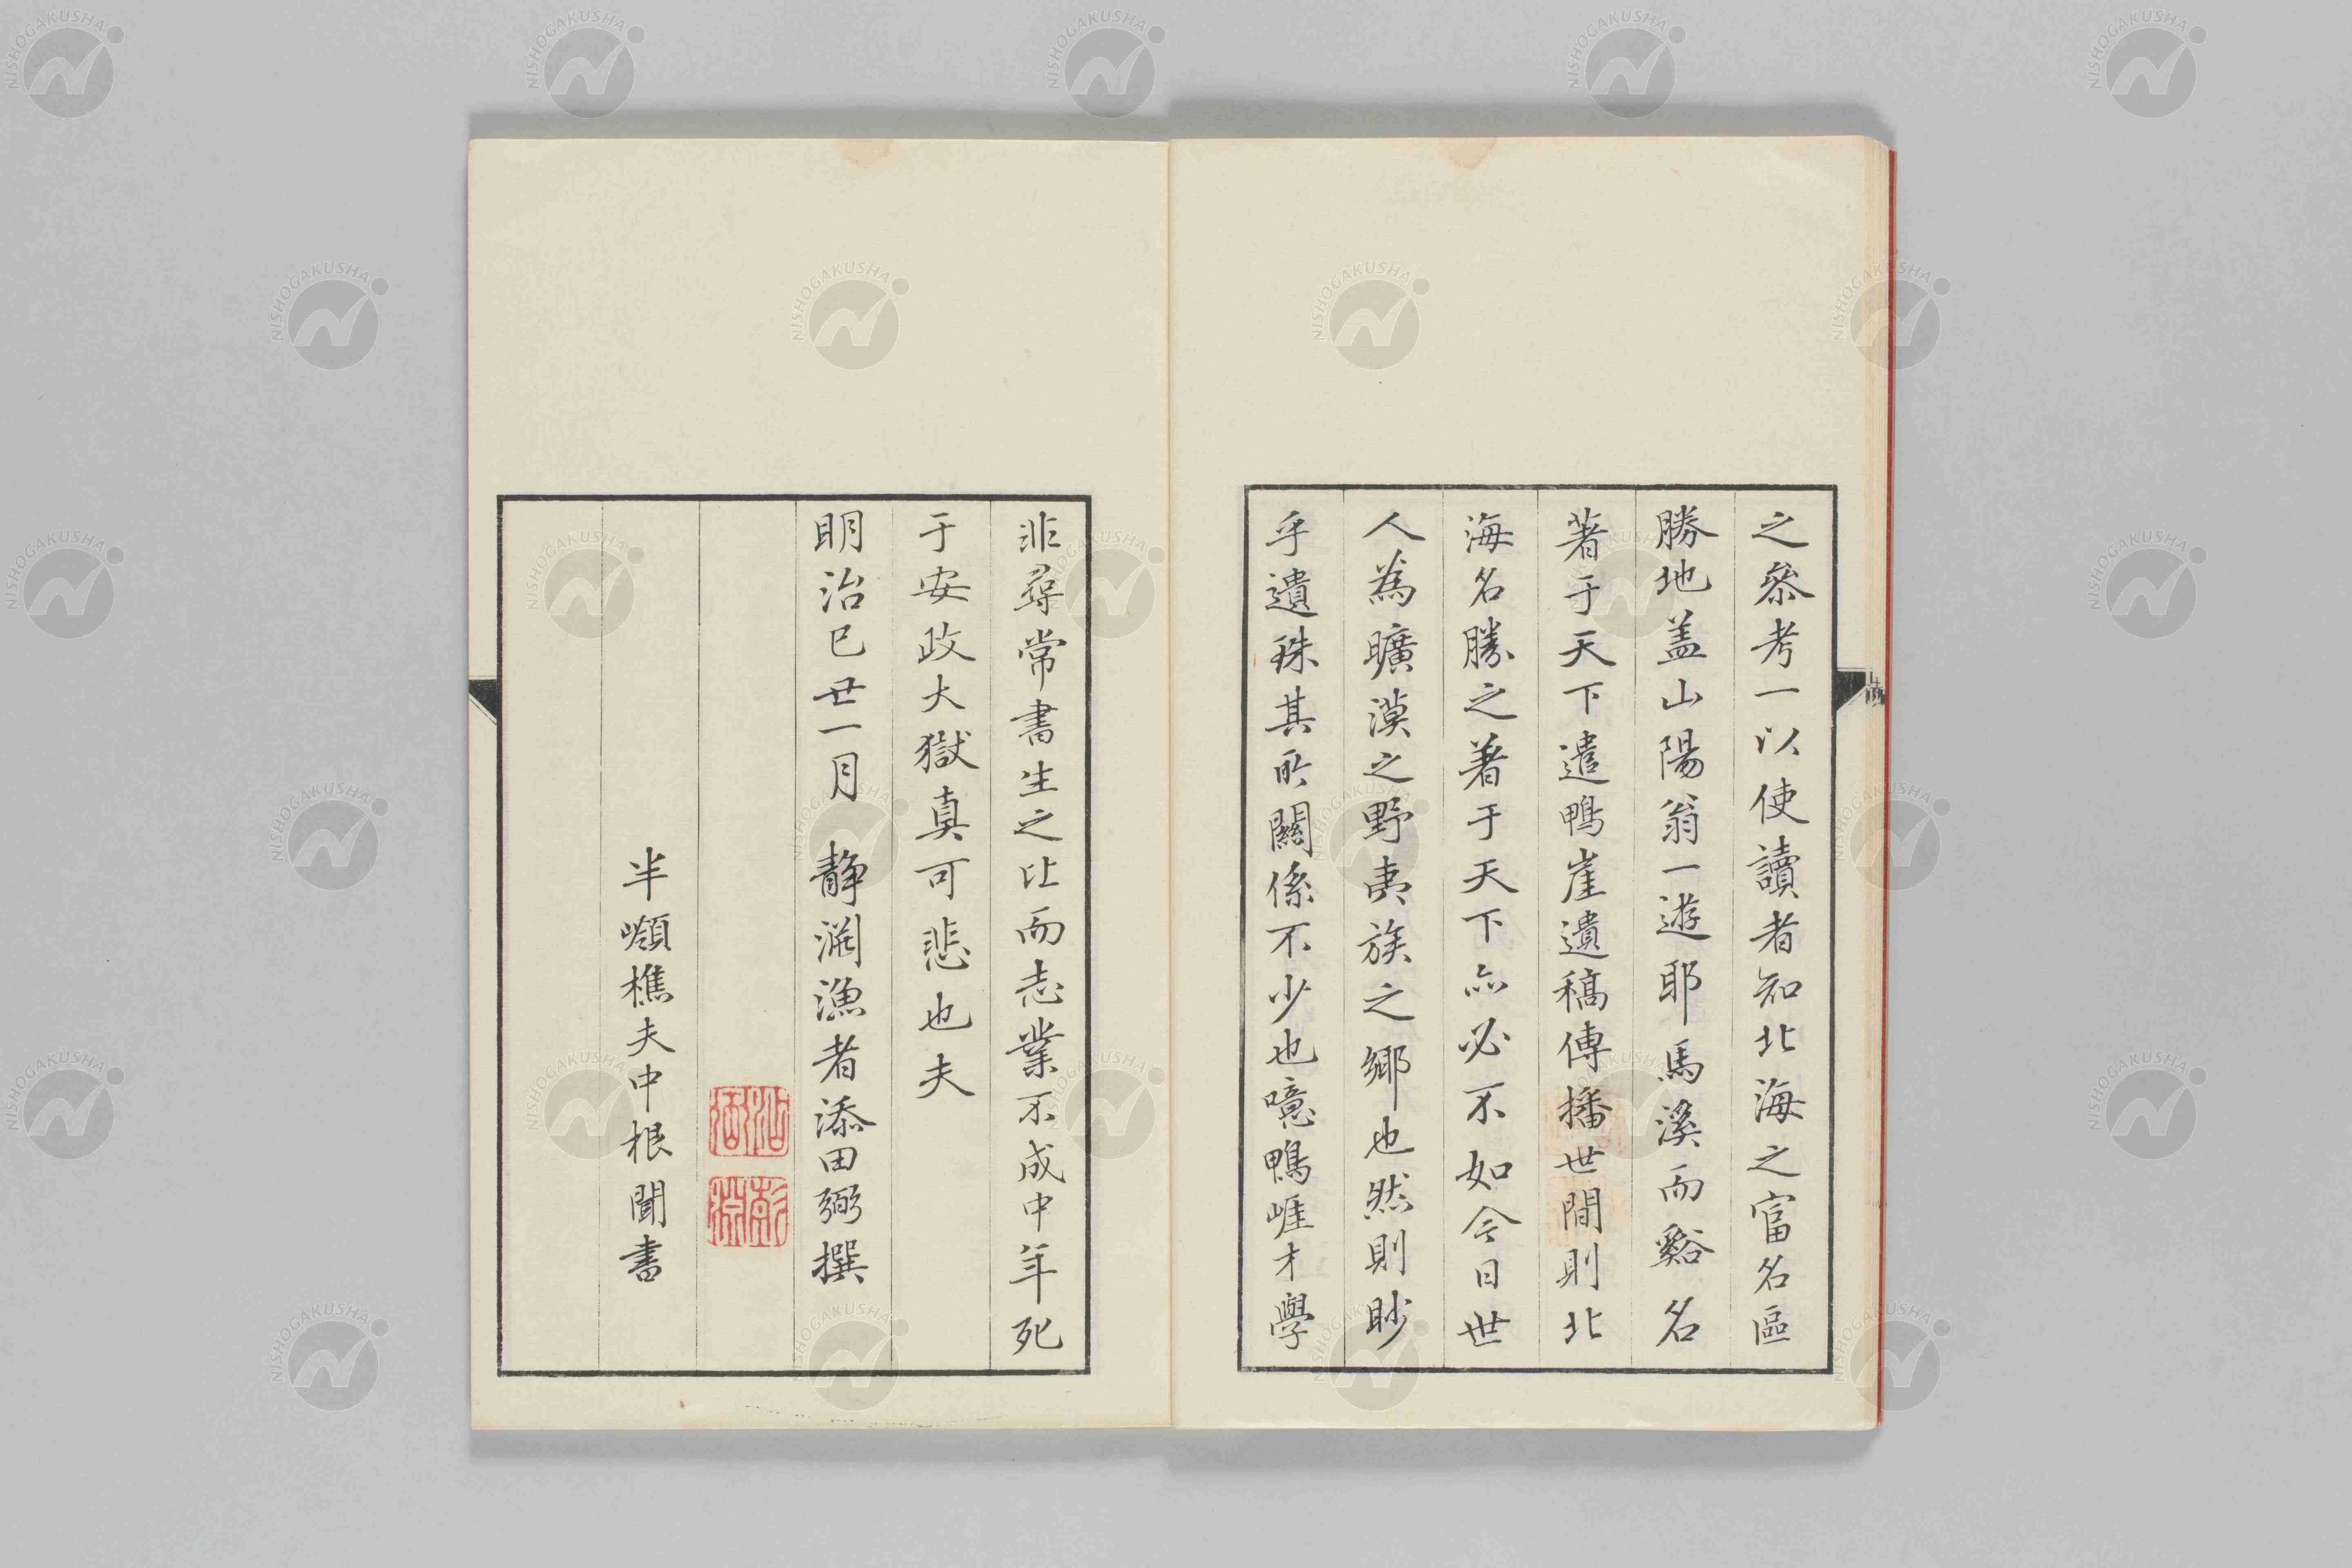 之叅考一以使讀者知北海之富名區
勝地盖山陽翁一遊耶馬溪而谿名
著于天下遣鴨崖遺稿傳播世間則北
海名勝之著于天下亦必不如今日世
人為曠漠之野夷族之鄉也然則眇
乎遺珠其所關係不少也噫鴨崕才學
非尋常書生之比而志業不成中年死
于安政大獄真可悲也夫
明治巳世一月 静淵漁者添田弼撰
半嶺樵夫中根聞書
NISHOGAKUSHA